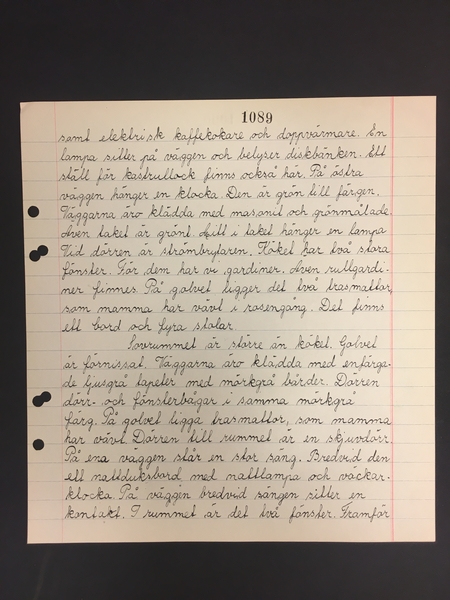 1089
samt elektrisk kaffekokare och doppvärmare. En
lampa sitter på väggen och belyser diskbänken. Ett
ställ för kastrullock finns också här. På östra
väggen hänger en klocka. Den är grön till färgen.
Väggarna äro klädda med masonit och grönmålade.
Även taket är grönt. Mitt i taket hänger en lampa
Vid dörren är strömbrytaren. Köket har två stora
fönster. För dem har vi gardiner. Även rullgardi-
ner finnes. På golvet ligger det två trasmattor,
som mamma har vävt i rosengång. Det finns
ett bord och fyra stolar.
Sovrummet är större än köket. Golvet
är förnissat. Väggarna äro klädda med enfärga-
de ljusgrå tapeter med mörkgrå bårder. Dörren
dörr- och fönsterbågar i samma mörkgrå
färg. På golvet ligga trasmattor, som mamma
har vävt. Dörren till rummet är en skjuvdörr.
På ena väggen står en stor säng. Bredvid den
ett nattduksbord med nattlampa och väckar-
klocka. På väggen bredvid sängen sitter en
kontakt. I rummet är det två fönster. Framför